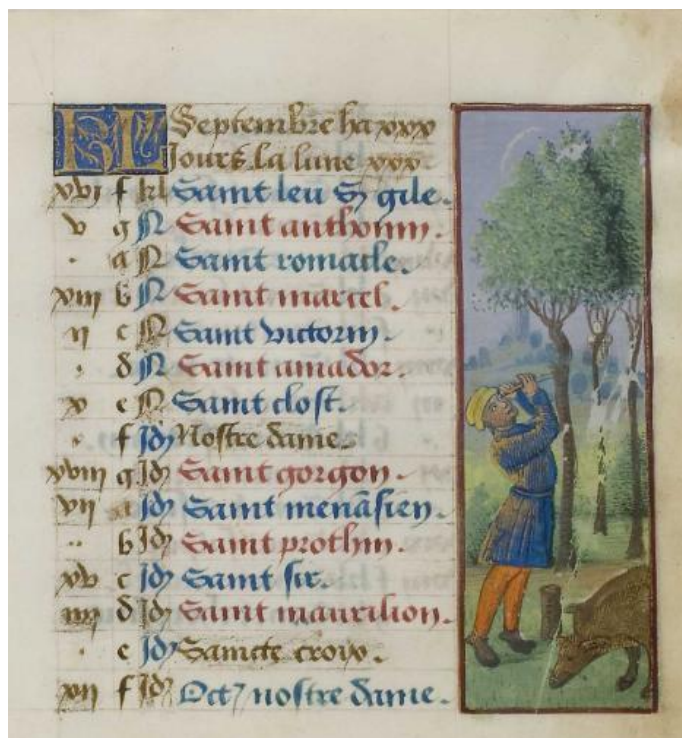 KL Septembre ha xxx
Jours. la lune xxx
xvi f kl Saint leu & gile.
v g N Saint anthonin.
. a N Saint romacle.
xiii b N Saint marcel.
ii c N Saint victorin.
. d N Saint amador.
x e N Saint clost.
. f Id Nostre dame.
xviii g Id Saint gorgon.
vii a Id Saint menasien.
.. b Id Saint prothin.
xv c Id Saint sir.
iiii d Id Saint maurilion.
. e Id Saincte croix.
xii f Id Oct nostre dame.